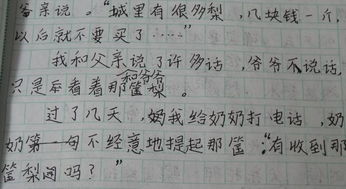 爷亲说。"城里有很多梨，几块钱一斤，
以后就不要买了……"
我和父亲说了许多话，爷爷不说话，
只是看着看着那筐梨。
和爷爷
过了几天，奶我给奶奶打电话，奶
奶第一句不经意地提起那筐："有收到那
筐梨闷吗？"